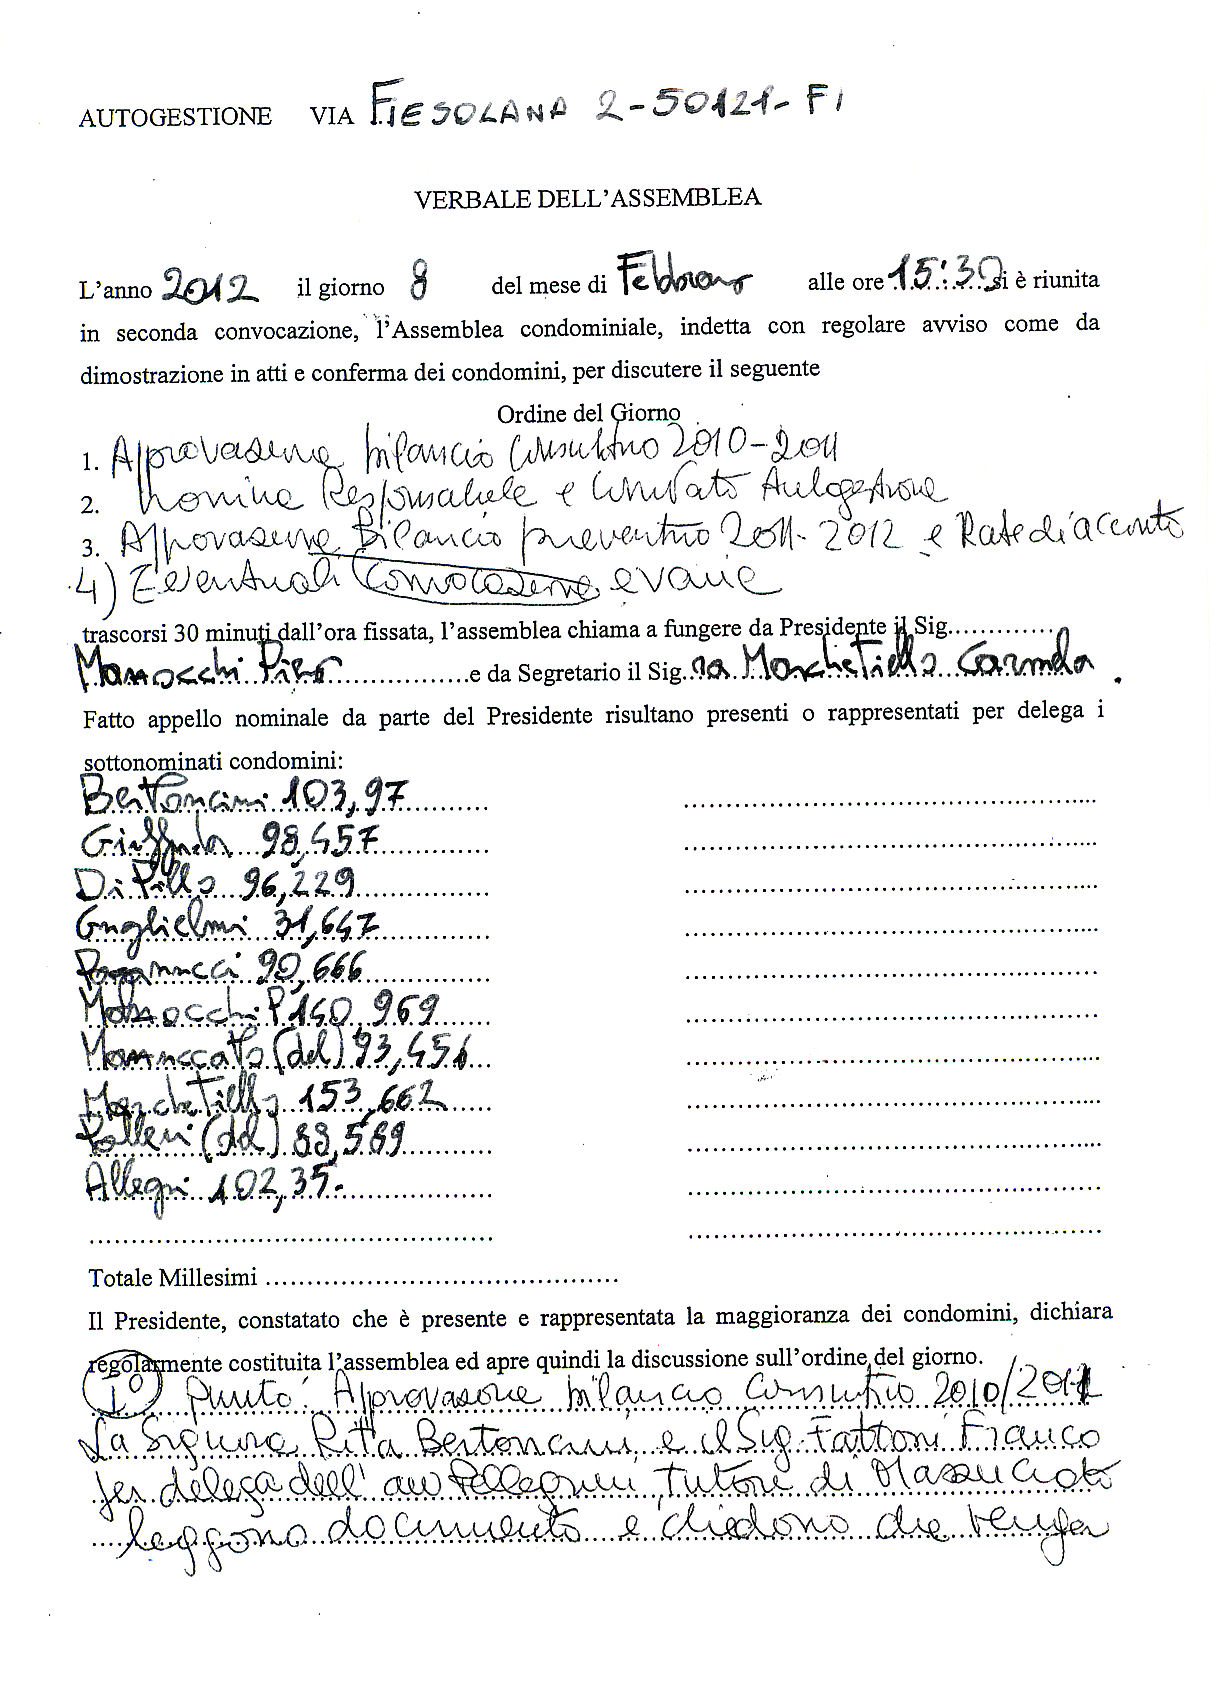 AUTOGESTIONE VIA FIESOLANA 2-50121-FI
VERBALE DELL'ASSEMBLEA
L'anno 2012 il giorno 8 del mese di Febbraio alle ore 15:30 si è riunita
in seconda convocazione, l'Assemblea condominiale, indetta con regolare avviso come da
dimostrazione in atti e conferma dei condomini, per discutere il seguente
Ordine del Giorno
1. Approvasione bilancio Consultivo 2010-2011
2. Nomina Responsabile e Comitato Autogestione
3. Approvasione Bilancio preventivo 2011-2012 e Rate di acconto
4) Eventuali Convocasione e varie
trascorsi 30 minuti dall'ora fissata, l'assemblea chiama a fungere da Presidente il Sig.............
Manocchi Piero..................e da Segretario il Sig.ra Marchetiello Carmela.
Fatto appello nominale da parte del Presidente risultano presenti o rappresentati per delega i
sottonominati condomini:
Bertoncini 103,97
Giuffrida 98,457
Di Pillo 96,229
Guglielmi 31,647
Paganucci 90,666
Manocchi P. 140,969
Mannuccato (del) 93,456
Marchetiello 153,662
Polleri (del) 88,589
Allegri 102,35-
Totale Millesimi ..........................................
Il Presidente, constatato che è presente e rappresentata la maggioranza dei condomini, dichiara
regolarmente costituita l'assemblea ed apre quindi la discussione sull'ordine del giorno.
1° punto: Approvasione bilancio Consultivo 2010/2011
La Signora Rita Bertoncini e il Sig. Fattori Franco
per delega dell'avv Pellegrini, Tutore di
leggono documento e chiedono che venga